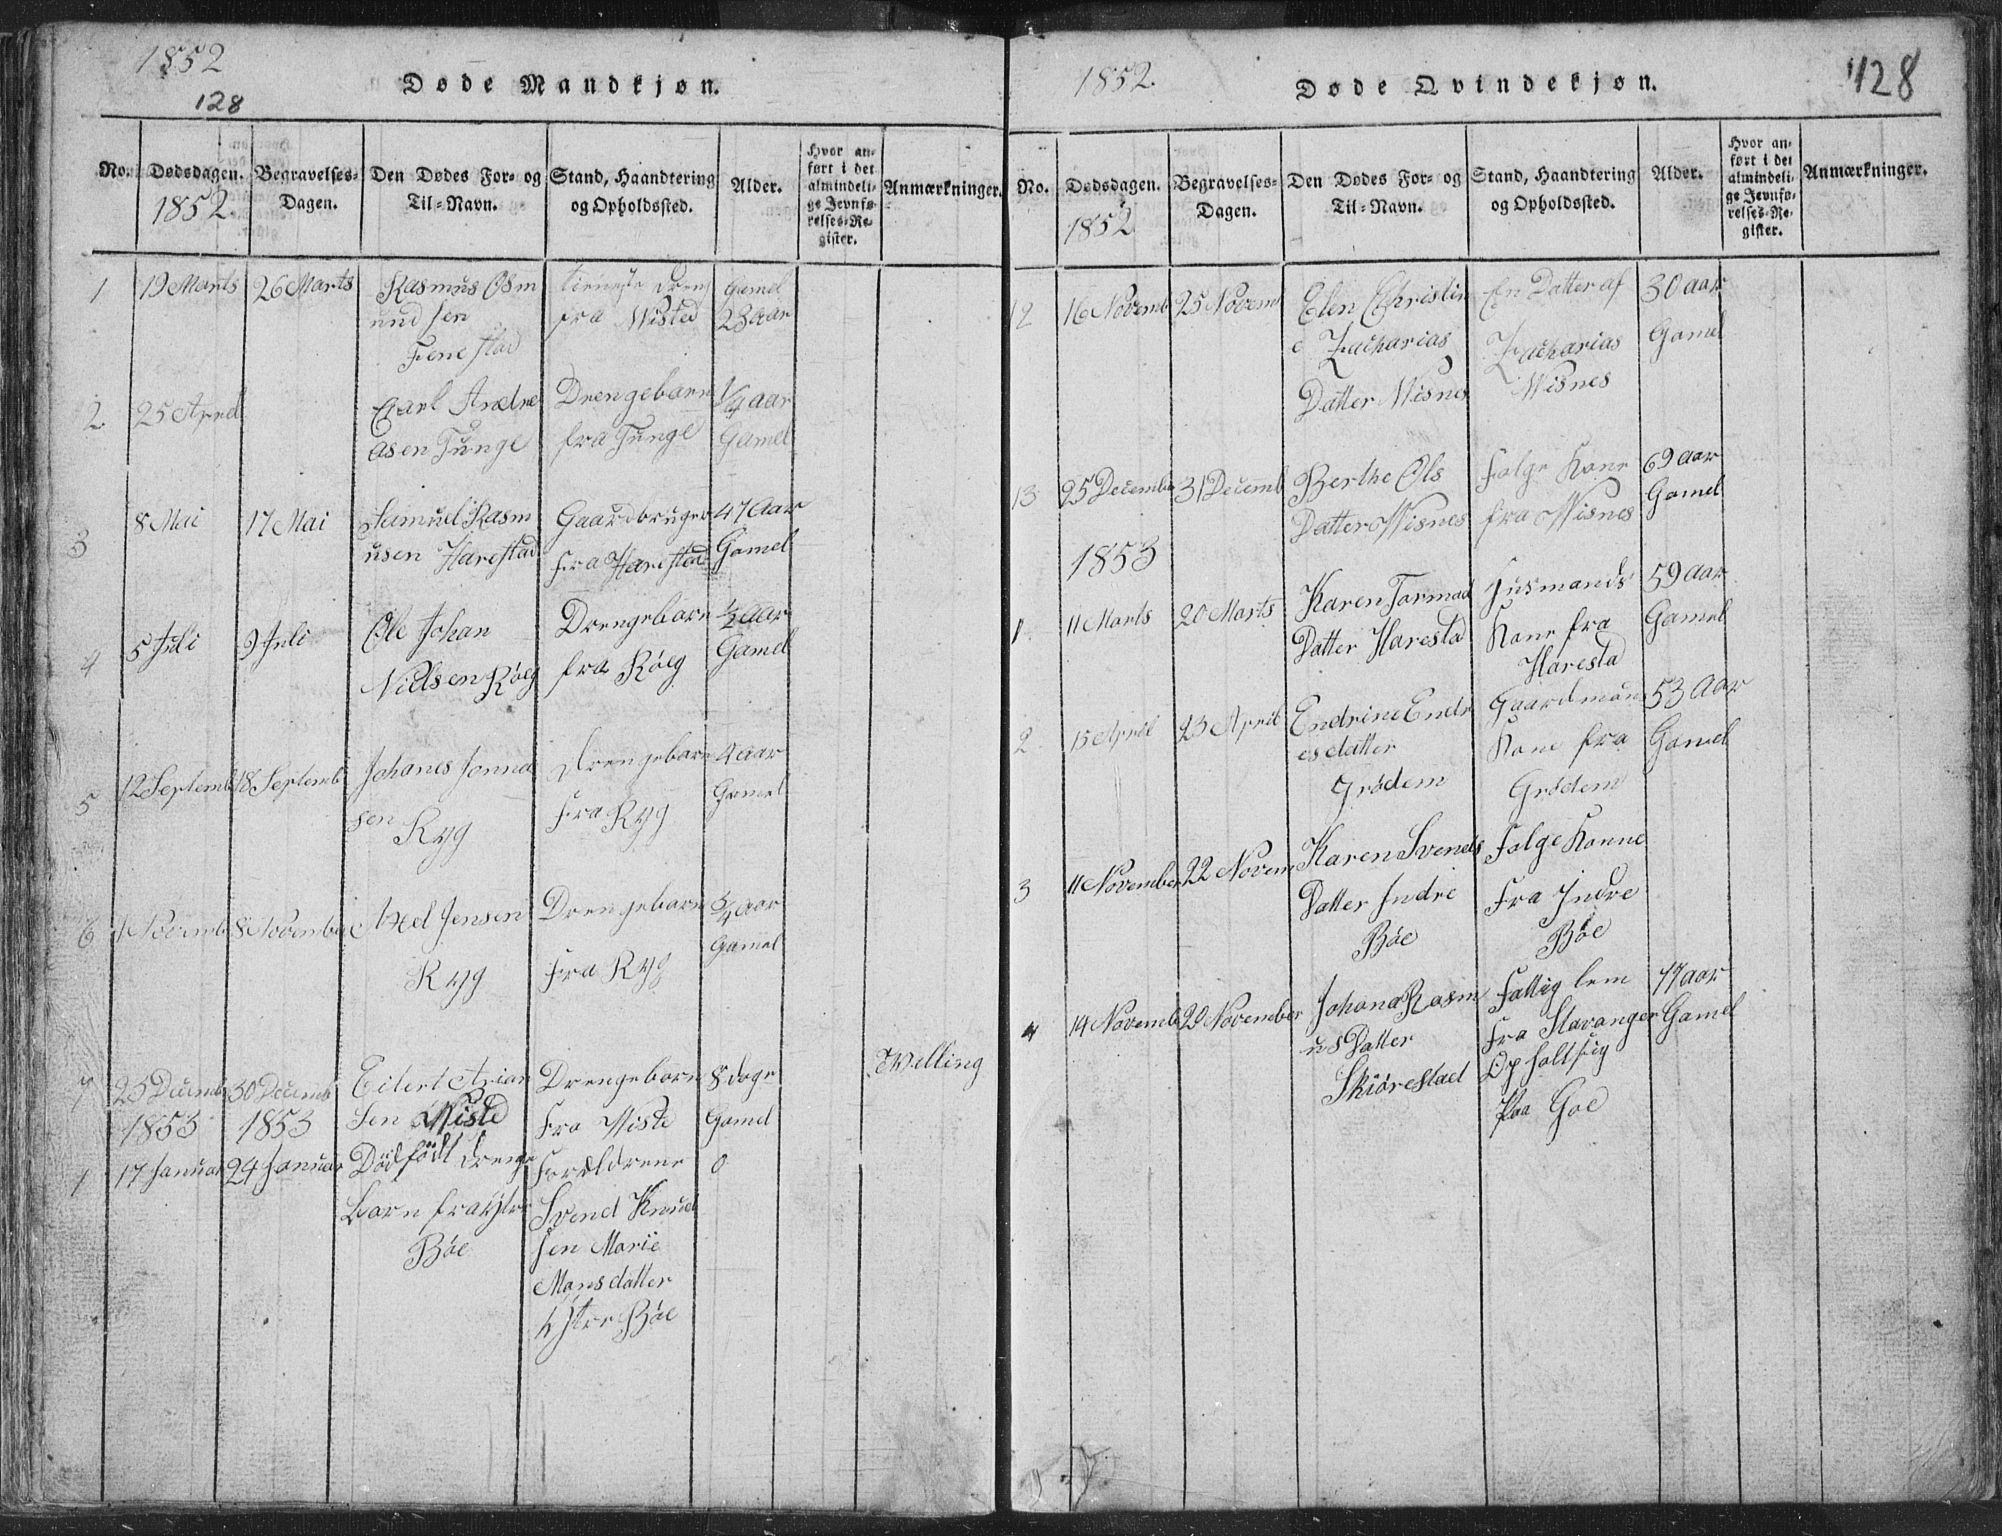 1852
128
Døde Mandkjøn.
No.
Dødsdagen.
1852
Begravelses-
Dagen.
Den Dødes For- og
Til-Navn.
Stand, Haandtering
og Opholdssted.
Alder.
Hvor an-
ført i det
almindeli-
ge Jevnfø-
relses-Re-
gister.
Anmærkninger.
1
19 Marts
26 Marts
Rasmus Osm
und sen
Fenestad
tieneste Dreng
fra Wisted
Gamel
23 aar
2
25 April
Carl Andre
asen Tunge
Drengebarn
fra Tunge
1/4 aar
Gamel
3
8 Mai
17 Mai
Samuel Rasm
usen Harestad
Gaardbruger
fra Harestad
47 aar
Gamel
4
5 Juli
9 Juli
Ole Johan
Nielsen Röeg
Drengebarn
fra Röeg
1/2 aar
Gamel
5
12 Septemb
18 Septemb
Johanes Jonna
sen
Ryg
Drengebarn
Fra Ryg
4 aar
Gamel
6
1 Novemb
8 November
Axel Jensen
Ryg
Drengebarn
Fra Ryg
5/4 aar
Gamel
7
25 Decemb
30 Decemb
Eilert Arian
Sen Wiste
Drengebarn
Fra Wiste
8 dage
Gamel
Welling
1853
1853
1
17 Januar
24 Januar
Dödfödt Drenge
barn fra Ytre
Böe
Forældrene
Svend Knud
sen Marie
Mansdatter
Ytre Böe
0
1852.
Døde Qvindekjøn.
128
No.
Dødsdagen.
1852
Begravelses-
Dagen.
Den Dødes For- og
Til-Navn.
Stand, Haandtering
og Opholdssted.
Alder.
Hvor an-
ført i det
almindeli-
ge Jevnfø-
relses-Re-
gister.
Anmærkninger.
12
16 Novemb
25 Novem
Elen Christin
e Zacharias
Datter Wisnes
En Datter af
Zacharias
Wisnes
30 aar
Gamel
13
25 December
31 Decemb
Berthe Ols
Datter Wisnes
Folge Kone
fra Wisnes
69 aar
Gamel
1853
1
11 Marts
20 Marts
Karen Tormod
Datter Haresta
Husmands
Kone fra
Haresta
59 aar
Gamel
2
15 April
23 April
Endrine Endr
esdatter
Grödem
Gaardman
Kone fra
Grödem
53 aar
Gamel
3
11 November
22 Novem
Karen Svends
Datter Indre
Böe
Folge Konne
Fra Indre
Böe
4
14 Novemb
20 November
Johana Rasm
us Datter
Skiörestad
Fattig lem
Fra Stavanger
Op holt sig
Paa Goe
77 aar
Gamel